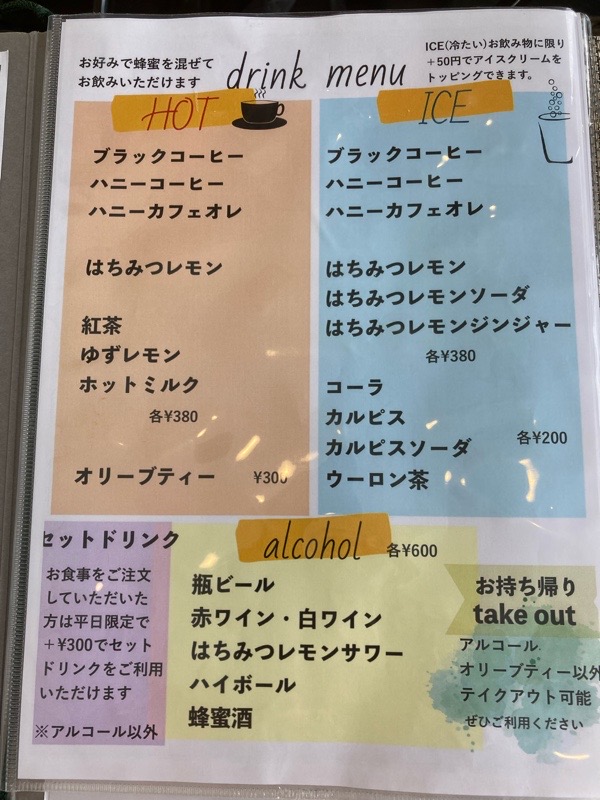 お好みで蜂蜜を混ぜて
お飲みいただけます
drink menu
ICE(冷たい)お飲み物に限り
+50円でアイスクリームを
トッピングできます。
HOT
ブラックコーヒー
ハニーコーヒー
ハニーカフェオレ
はちみつレモン
紅茶
ゆずレモン
ホットミルク
各¥380
オリーブティー ¥300
ICE
ブラックコーヒー
ハニーコーヒー
ハニーカフェオレ
はちみつレモン
はちみつレモンソーダ
はちみつレモンジンジャー
各¥380
コーラ
カルピス
カルピスソーダ
各¥200
ウーロン茶
セットドリンク
お食事をご注文
していただいた
方は平日限定で
+¥300でセット
ドリンクをご利用
いただけます
※アルコール以外
alcohol 各¥600
瓶ビール
赤ワイン・白ワイン
はちみつレモンサワー
ハイボール
蜂蜜酒
お持ち帰り
take out
アルコール
オリーブティー以外
テイクアウト可能
ぜひご利用ください